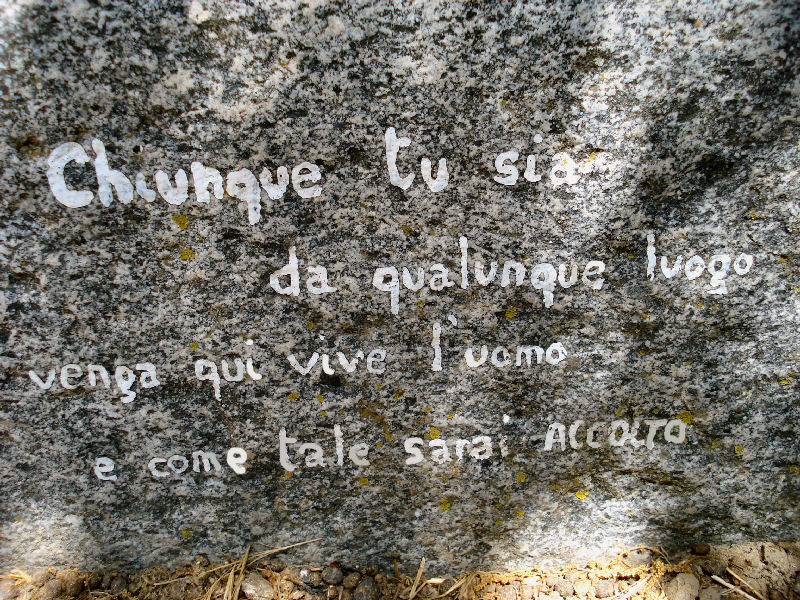 Chiunque tu sia
da qualunque luogo
venga qui vive l'uomo
e come tale sarai ACCOLTO